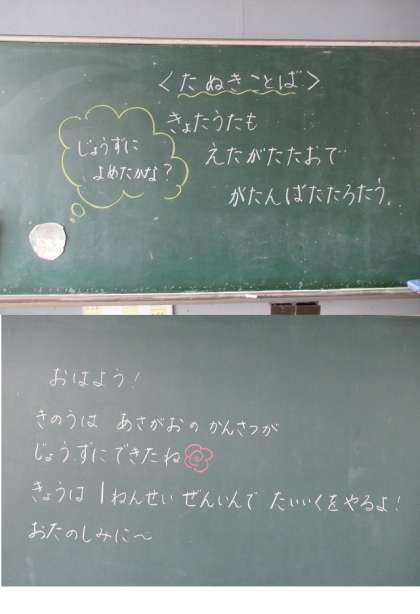 ＜たぬきことば＞
じょうずに
よめたかな？
きょたうたも
えたがたたおで
がたんばたたろたう。
おはよう！
きのうは あさがおの かんさつが
じょうずにできたね
きょうは 1ねんせい ぜんいんで たいいくをやるよ！
おたのしみに～